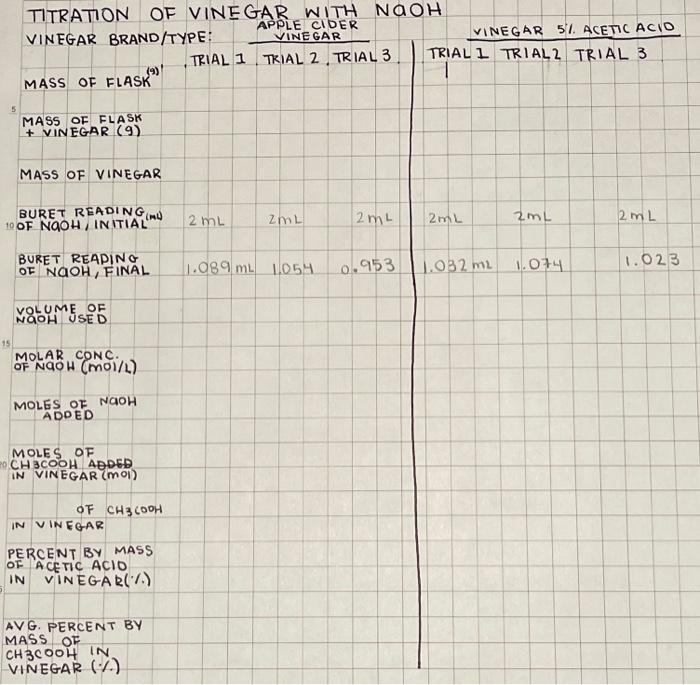 TITRATION OF VINEGAR WITH NaOH
VINEGAR BRAND/TYPE: APPLE CIDER VINEGAR VINEGAR 5% ACETIC ACID
TRIAL 1 TRIAL 2 TRIAL 3 TRIAL 1 TRIAL 2 TRIAL 3
MASS OF FLASK (g)
5
MASS OF FLASK
+ VINEGAR (g)
MASS OF VINEGAR
BURET READING (mL)
10 OF NaOH, INITIAL 2 mL 2mL 2mL 2mL 2mL 2mL
BURET READING
OF NaOH, FINAL 1.089 mL 1.054 0.953 1.032 mL 1.074 1.023
VOLUME OF
NaOH USED
15
MOLAR CONC.
OF NaOH (mol/L)
MOLES OF NaOH
ADDED
MOLES OF
CH3COOH ADDED
IN VINEGAR (mol)
OF CH3COOH
IN VINEGAR
PERCENT BY MASS
OF ACETIC ACID
IN VINEGAR (%)
AVG. PERCENT BY
MASS OF
CH3COOH IN
VINEGAR (%)